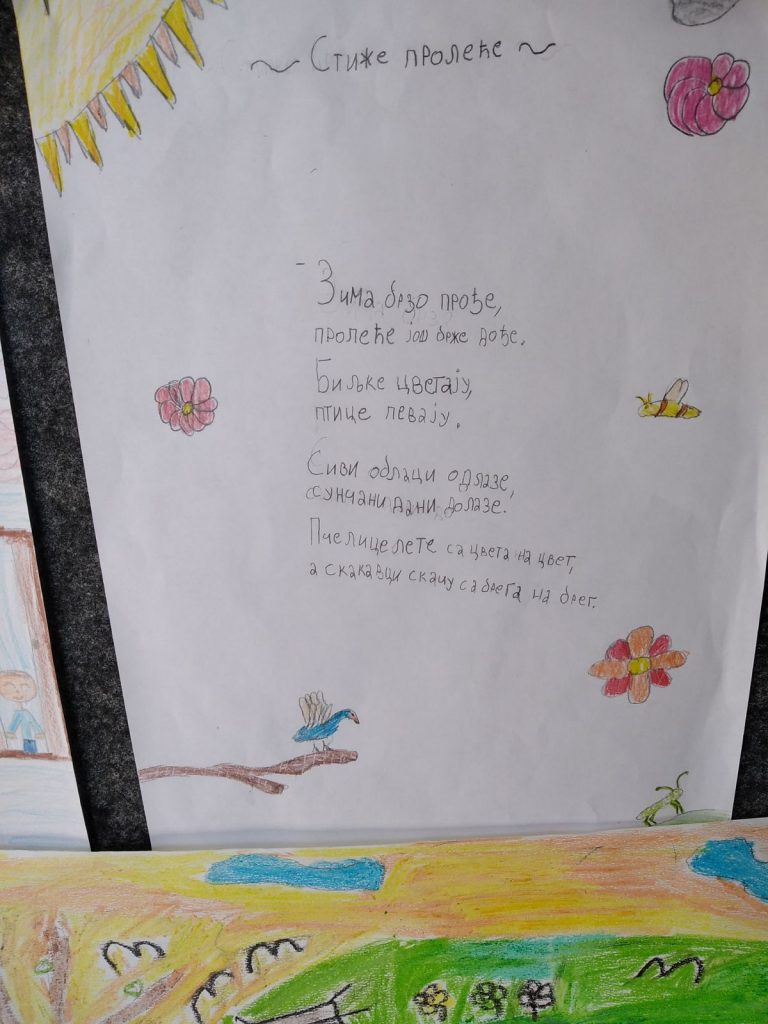 ~ Стиже пролеће ~
- Зима брзо прође,
пролеће још брже дође.
Биљке цветају,
птице певају.
Сиви облаци одлазе,
сунчани дани долазе.
Пчелице лете са цвета на цвет,
а скакавци скачу са брега на брег.